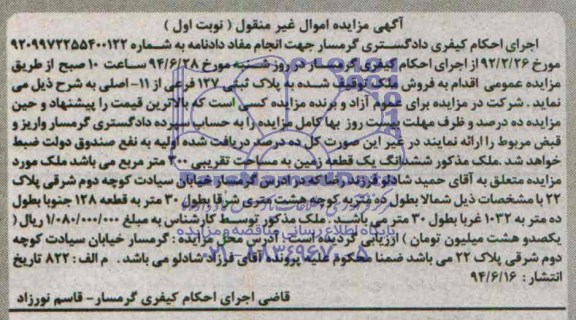 آگهی مزایده اموال غیر منقول ( نوبت اول )
اجرای احکام کیفری دادگستری گرمسار جهت انجام مفاد دادنامه به شماره ۹۲۰۹۹۷۲۲۵۵۴۰۰۱۲۲
مورخ ۹۲/۲/۲۶ از اجرای احکام کیفری گرمسار در روز شنبه مورخ ۹۴/۶/۲۸ ساعت ۱۰ صبح از طریق
مزایده عمومی اقدام به فروش ملک توقیف شده به پلاک ثبتی ۱۲۷ فرعی از ۱۱- اصلی به شرح ذیل می
نماید . شرکت در مزایده برای عموم آزاد و برنده مزایده کسی است که بالاترین قیمت را پیشنهاد و حین
مزایده ده درصد و ظرف مهلت بیست روز بها کامل مزایده را به حساب سپرده دادگستری گرمسار واریز و
قبض مربوط را ارائه نمایند در غیر این صورت کل ده درصد دریافت شده اولیه به نفع صندوق دولت ضبط
خواهد شد .ملک مذکور ششدانگ یک قطعه زمین به مساحت تقریبی ۳۰۰ متر مربع می باشد ملک مورد
مزایده متعلق به آقای حمید شادلو فرزند رضا که در ادرس گرمسار خیابان سیادت کوچه دوم شرقی پلاک
۲۲ با مشخصات ذیل شمالا بطول ده متر به کوچه هشت متری شرقا بطول ۳۰ متر به قطعه ۱۲۸ جنوبا بطول
ده متر به ۱۰۳۲ غربا بطول ۳۰ متر می باشد . ملک مذکور توسط کارشناس به مبلغ ۱/۰۸۰/۰۰۰/۰۰۰ ریال (
یکصدو هشت میلیون تومان ) ارزیابی گردیده است . آدرس محل مزایده : گرمسار خیابان سیادت کوچه
دوم شرقی پلاک ۲۲ می باشد ضمنا محکوم علیه پرونده آقای فرزاد شادلو می باشد . م الف : ۸۲۲ تاریخ
انتشار : ۹۴/۶/۱۶
قاضی اجرای احکام کیفری گرمسار - قاسم نورزاد
پایگاه اطلاع رسانی مناقصه و مزایده